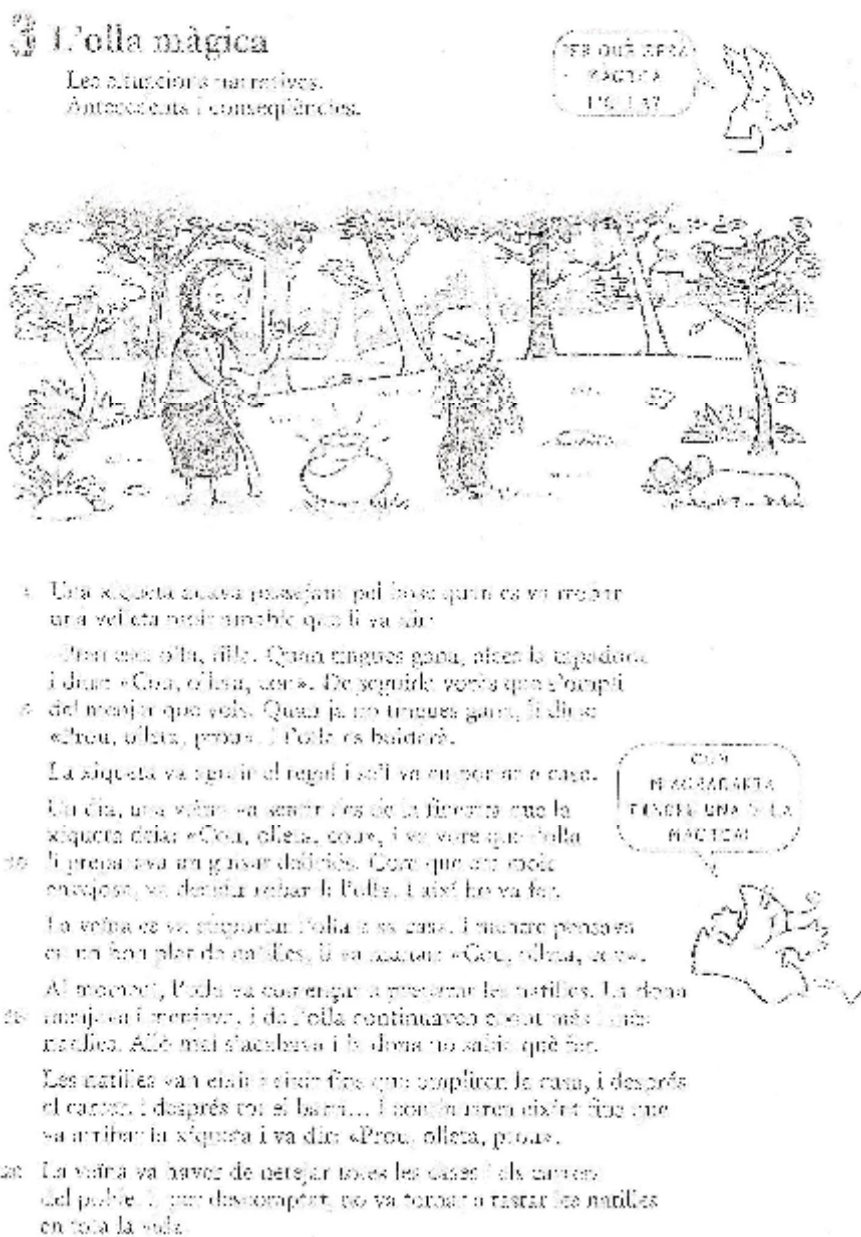 3 L'olla màgica
Les situacions narratives.
Antecedents i conseqüències.
PER QUÈ SERÀ
MÀGICA
L'OLLA?
1 Una xiqueta anava passejant pel bosc quan es va trobar
una velleta molt amable que li va dir:
–Pren esta olla, filla. Quan tingues gana, alces la tapadora
i dius: «Cou, olleta, cou». De seguida voràs que s'ompli
5 del menjar que vols. Quan ja no tingues gana, li dius:
«Prou, olleta, prou». I l'olla es buidarà.
La xiqueta va agrair el regal i se'l va emportar a casa.
Un dia, una veïna va sentir des de la finestra que la
xiqueta deia: «Cou, olleta, cou», i va vore que l'olla
10 li preparava un guisat deliciós. Com que era molt
envejosa, va decidir robar-li l'olla. I així ho va fer.
COM
M'AGRADARIA
TINDRE UNA OLLA
MÀGICA!
La veïna es va emportar l'olla a sa casa. I mentre pensava
en un bon plat de natilles, li va manar: «Cou, olleta, cou».
Al moment, l'olla va començar a preparar les natilles. La dona
15 menjava i menjava, i de l'olla continuaven eixint més i més
natilles. Allò mai s'acabava i la dona no sabia què fer.
Les natilles van eixir i eixir fins que ompliren la casa, i després
el carrer, i després tot el barri... I continuaren eixint fins que
va arribar la xiqueta i va dir: «Prou, olleta, prou».
20 La veïna va haver de netejar totes les cases i els carrers
del poble. I, per descomptat, no va tornar a tastar les natilles
en tota la vida.